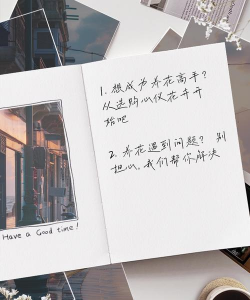 1. 想成为养花高手?
从选购心仪花卉开
始吧
2. 养花遇到问题? 别
担心,我们帮你解决
Have a Good time!